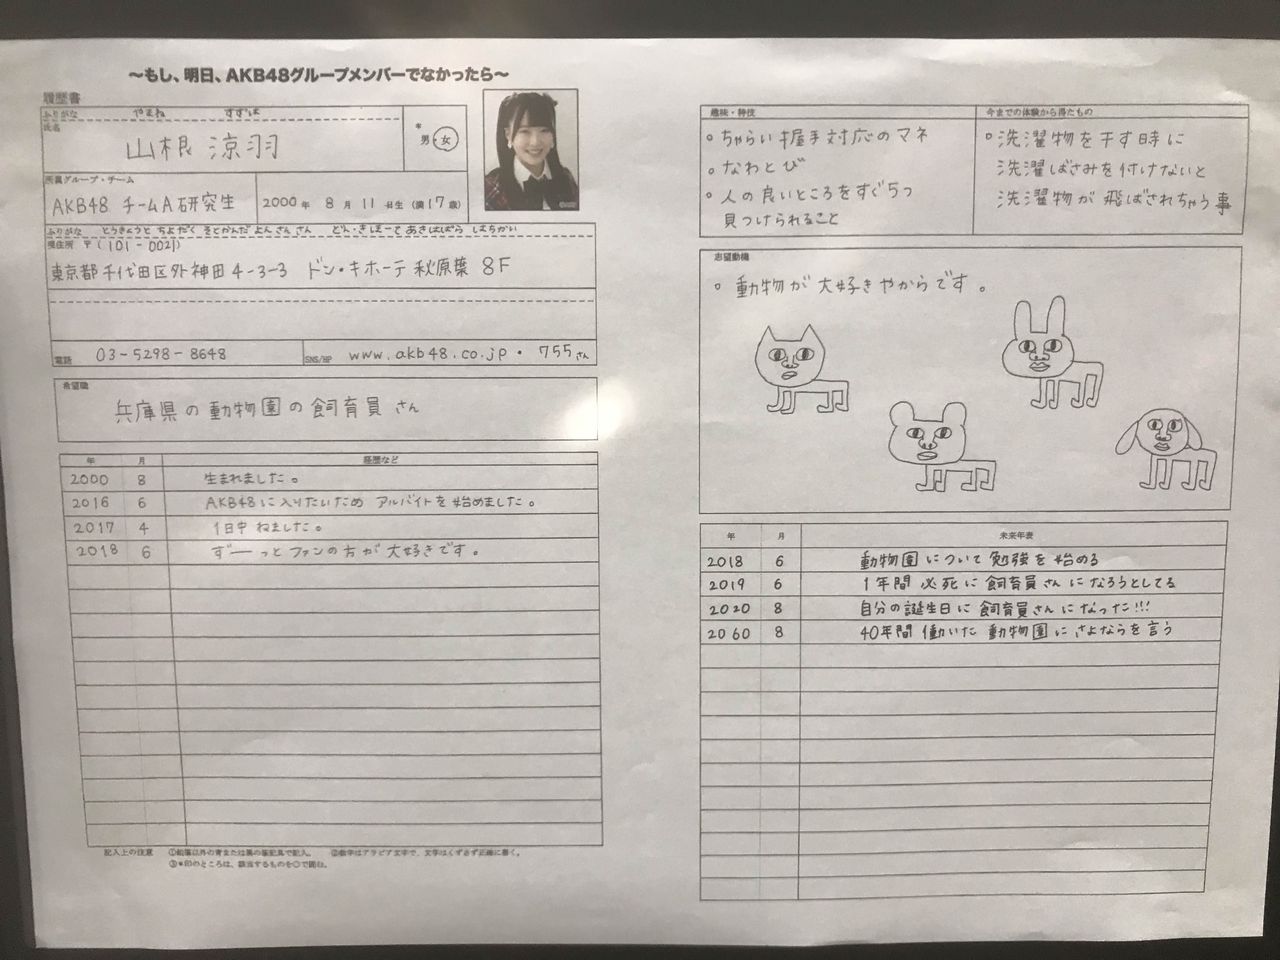 ～もし、明日、AKB48グループメンバーでなかったら～
履歴書
ふりがな やまね すずは
氏名
山根 涼羽
*
男・女
所属グループ・チーム
AKB48 チームA研究生
2000年 8月 11日生 (満17歳)
ふりがな とうきょうと ちよだく そとかんだ よん さん さん どん・きほーて あきはばら
現住所 〒(101-0021)
東京都千代田区外神田4-3-3 ドン・キホーテ秋原葉 8F
電話 03-5298-8648
SNS/HP www.akb48.co.jp・755さん
希望職
兵庫県の動物園の飼育員さん
年 月 経歴など
2000 8 生まれました。
2016 6 AKB48に入りたいため アルバイトを始めました。
2017 4 1日中ねました。
2018 6 ずーっとファンの方が大好きです。
記入上の注意 ①鉛筆以外の青または黒の筆記具で記入。 ②数字はアラビア文字で、文字はくずさず正確に書く。
③*印のところは、該当するものを○で囲む。
趣味・特技
○ちゃらい握手対応のマネ
○なわとび
○人の良いところをすぐ5つ
見つけられること
今までの体験から得たもの
○洗濯物を干す時に
洗濯ばさみを付けないと
洗濯物が飛ばされちゃう事
志望動機
○動物が大好きやからです。
年 月 未来年表
2018 6 動物園について勉強を始める
2019 6 1年間必死に飼育員さんになろうとしてる
2020 8 自分の誕生日に飼育員さんになった!!!
2060 8 40年間働いた動物園にさよならを言う